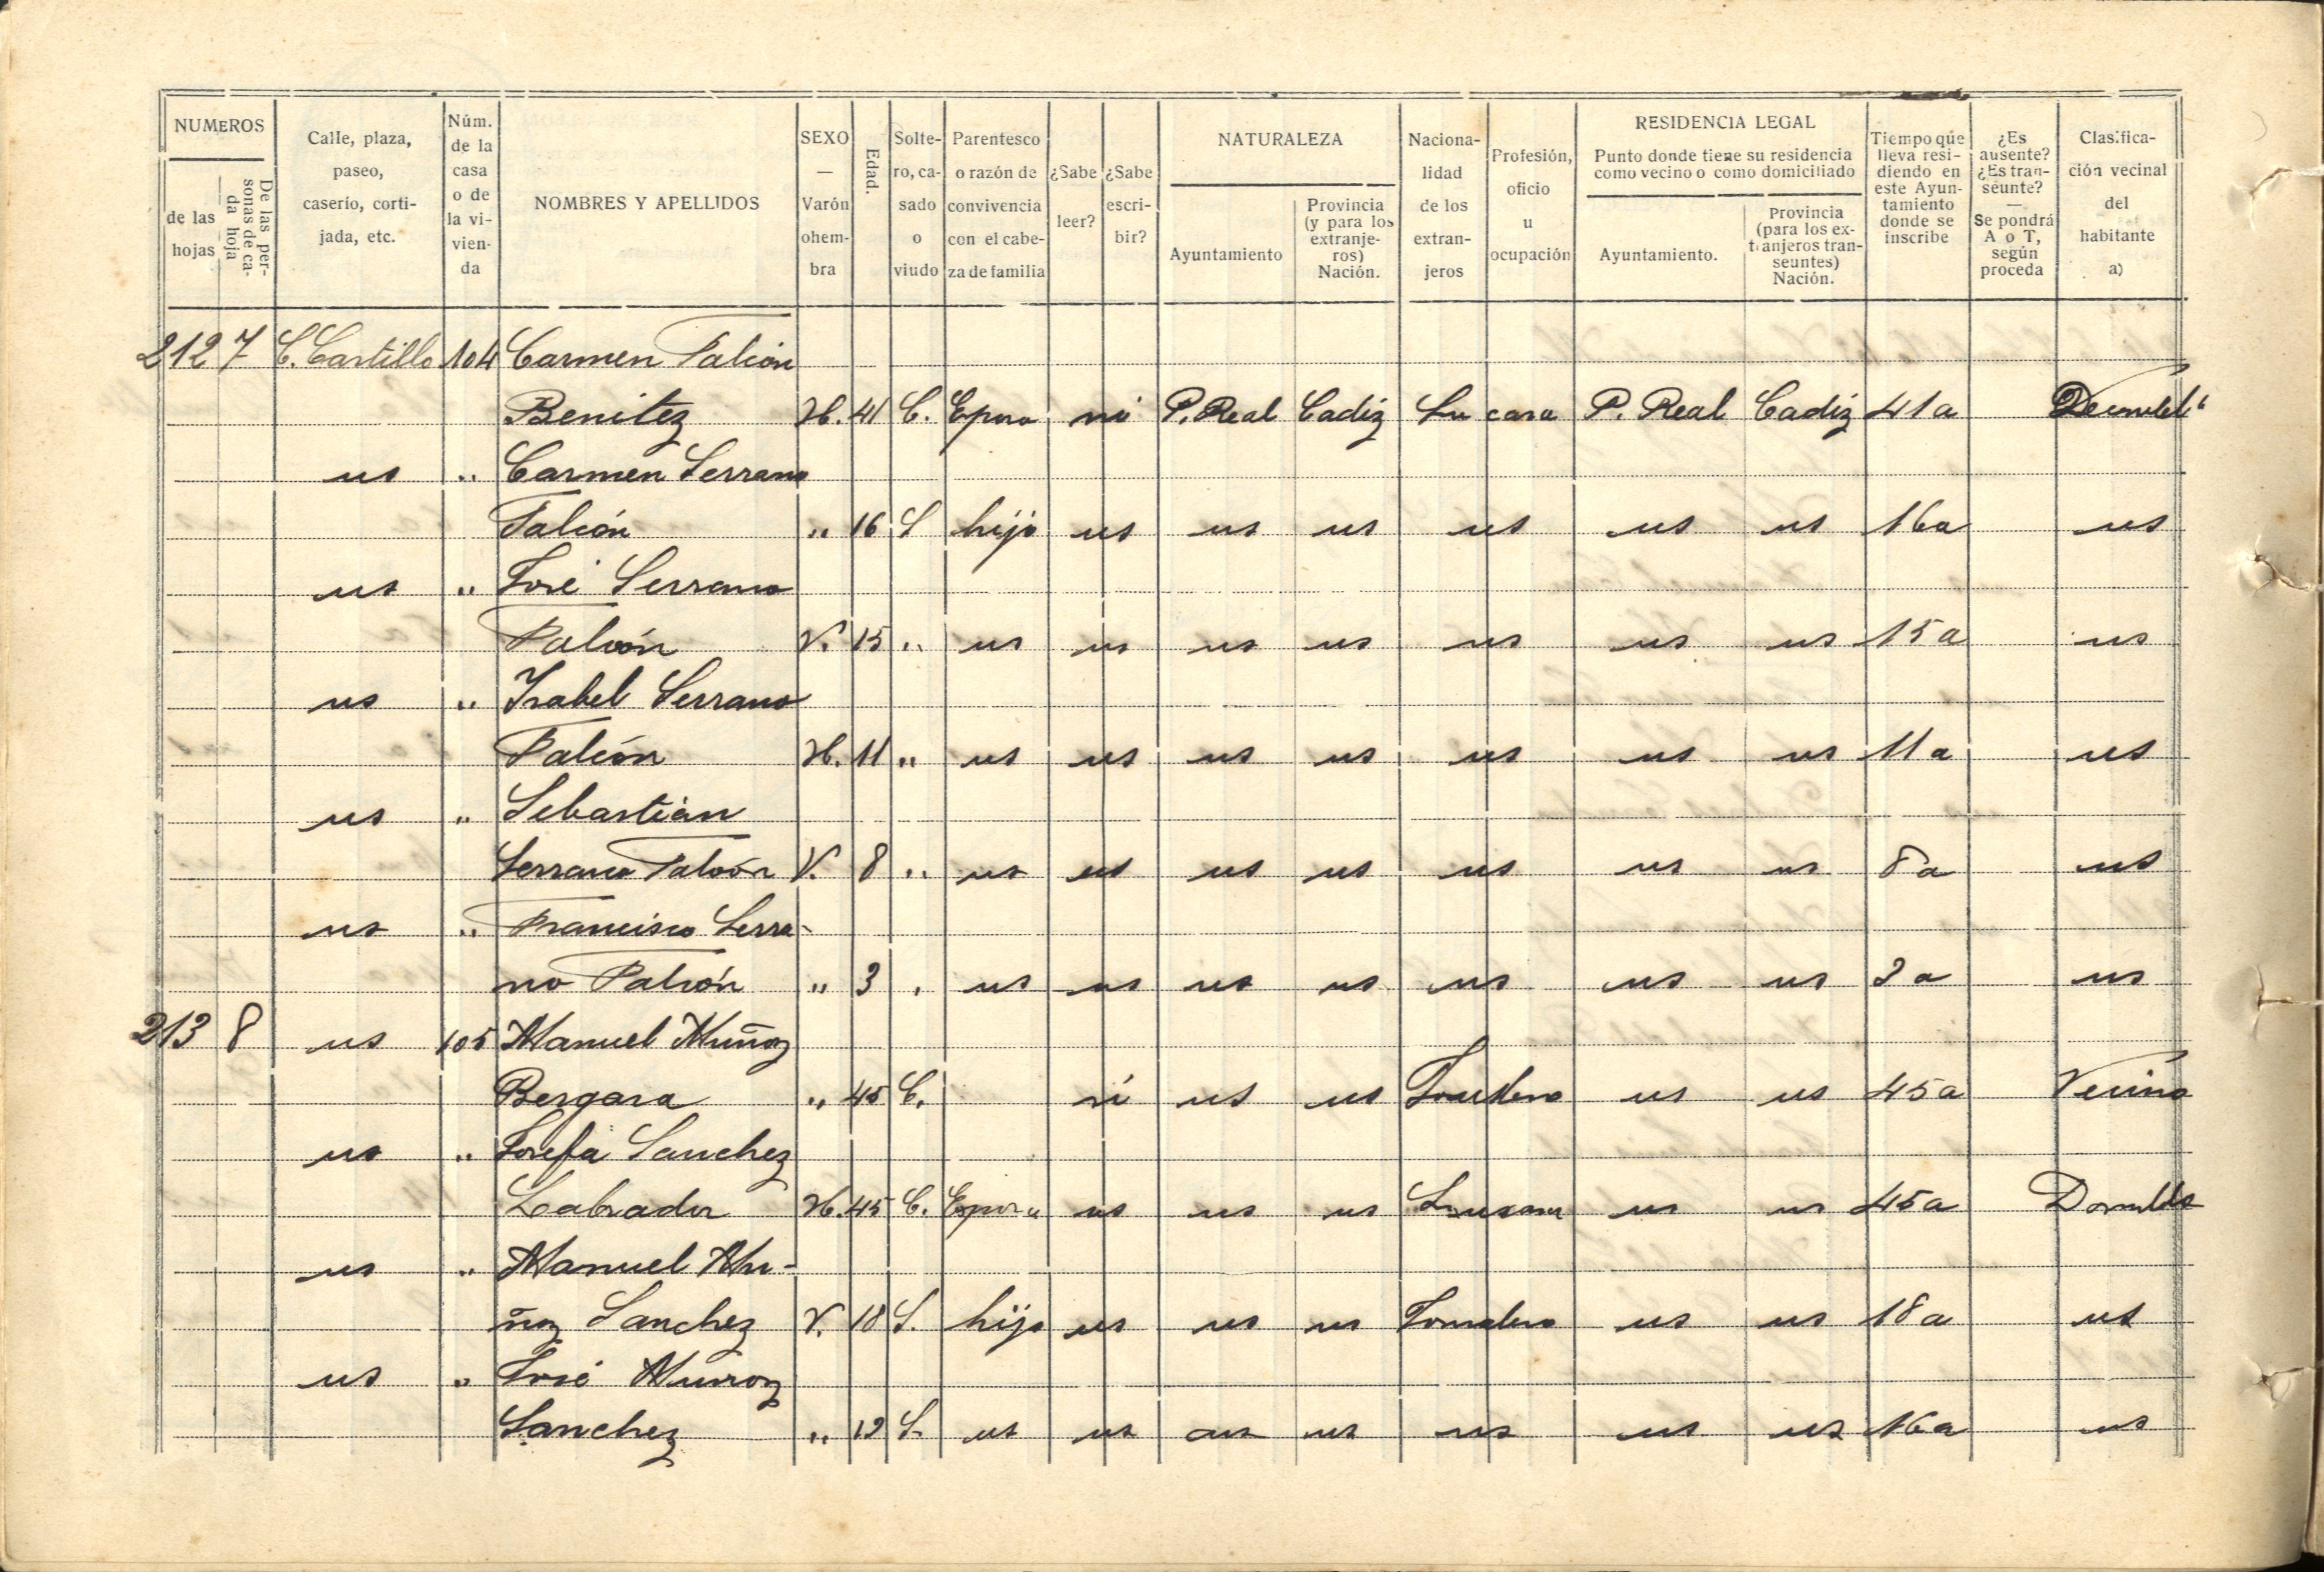 NUMEROS
de las hojas
De las personas de cada hoja
Calle, plaza, paseo, caserío, cortijada, etc.
Núm. de la casa o de la vivienda
NOMBRES Y APELLIDOS
SEXO — Varón ohembra
Edad.
Soltero, casado o viudo
Parentesco o razón de convivencia con el cabeza de familia
¿Sabe leer?
¿Sabe escribir?
NATURALEZA
Ayuntamiento
Provincia (y para los extranjeros) Nación.
Nacionalidad de los extranjeros
Profesión, oficio u ocupación
RESIDENCIA LEGAL
Punto donde tiene su residencia como vecino o como domiciliado
Ayuntamiento.
Provincia (para los extranjeros transeuntes) Nación.
Tiempo que lleva residiendo en este Ayuntamiento donde se inscribe
¿Es ausente? ¿Es transeunte? — Se pondrá A o T, según proceda
Clasificación vecinal del habitante a)
212 7 C. Castillo 104 Carmen Falcón
Benitez H. 41 C. Eposa P. Real Cadiz Su casa P. Real Cadiz 41 a
us " Carmen Serrano
Falcón " 16 S hijo us us us us us us 16 a us
us " José Serrano
Falcón V. 15 " us us us us us us us 15 a us
us " Isabel Serrano
Falcón H. 11 " us us us us us us us 11 a us
us " Sebastián
Serrano Falcón V. 8 " us us us us us us us 8 a us
us " Francisco Serra-
no Falcón " 3 " us us us us us us us 3 a us
213 8 us 105 Manuel Muñoz
Bergara " 45 C. si us us us us 45 a Vecino
us " Josefa Sanchez
Labrador H. 45 C. Esposa us us us Su casa us us 45 a
us " Manuel Mu-
ñoz Sanchez V. 18 S. hijo us us us Jornalero us us 18 a us
us " José Munoz
Sanchez " S. us us us us us us us 16 a us